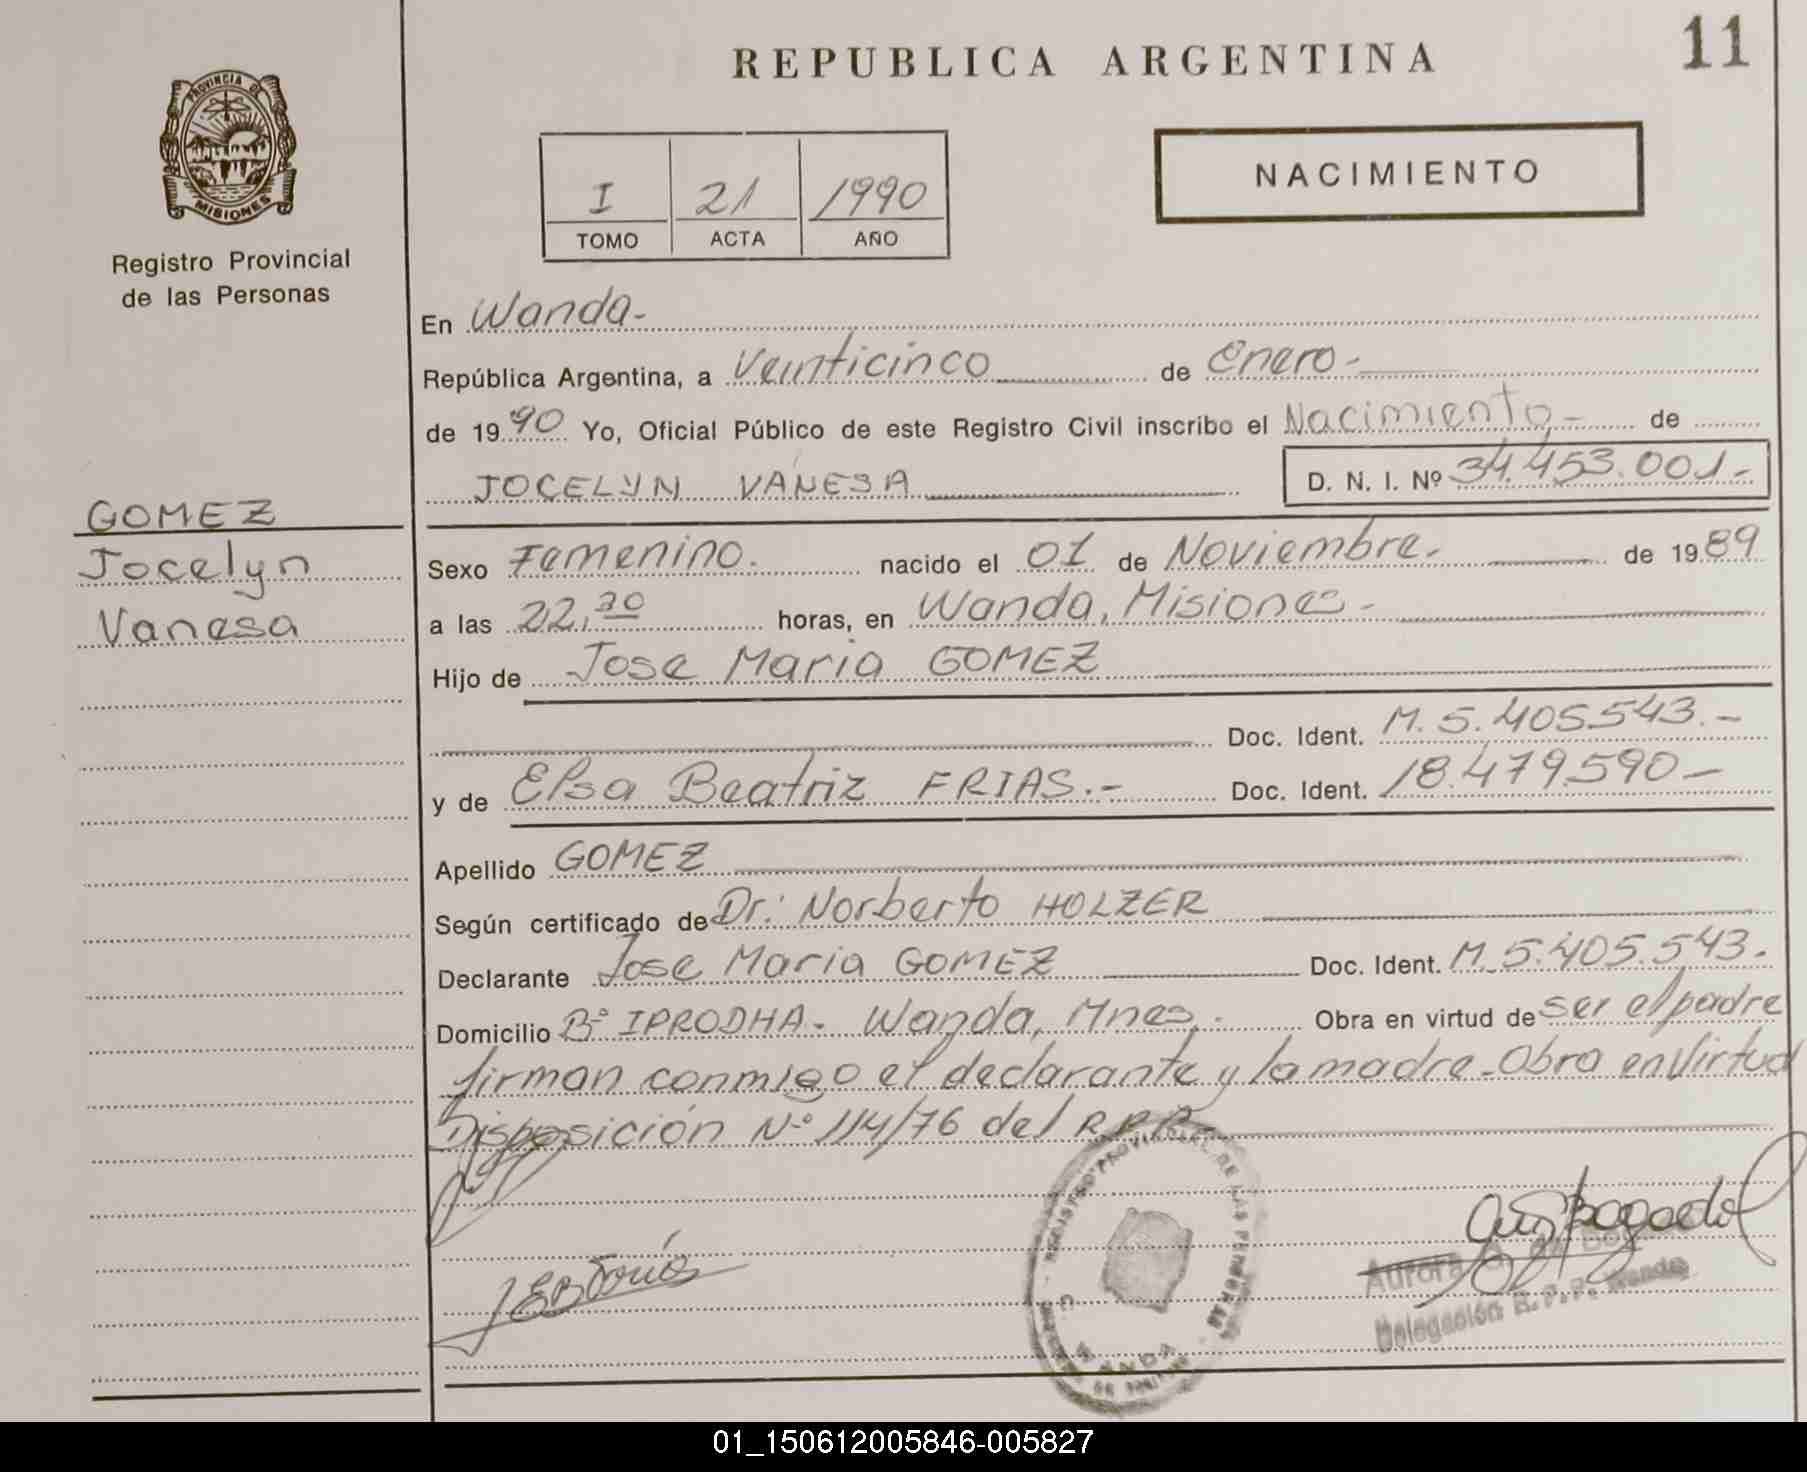 REPUBLICA ARGENTINA
11
PROVINCIA DE
MISIONES
Registro Provincial
de las Personas
NACIMIENTO
I 21 1990
TOMO ACTA AÑO
En Wanda-
República Argentina, a Veinticinco de Enero-
de 1990 Yo, Oficial Público de este Registro Civil inscribo el Nacimiento- de
JOCELYN VANESA D. N. I. Nº 34.453.001.-
GOMEZ
Jocelyn
Vanesa
Sexo Femenino. nacido el 01 de Noviembre. de 1989
a las 22,30 horas, en Wanda, Misiones-
Hijo de Jose Maria GOMEZ
Doc. Ident. M. 5.405.543.-
y de Elsa Beatriz FRIAS.- Doc. Ident. 18.479.590-
Apellido GOMEZ
Según certificado de Dr: Norberto HOLZER
Declarante Jose Maria GOMEZ Doc. Ident. M. 5.405.543.
Domicilio Bº IPRODHA- Wanda, Mnes,. Obra en virtud de ser el padre
firman conmigo el declarante y la madre-Obra en virtud
Disposición Nº 114/76 del R.P.P.
REGISTRO PROVINCIAL DE LAS PERSONAS
WANDA
Aurora
Delegación R.P.P. Wanda
01_150612005846-005827